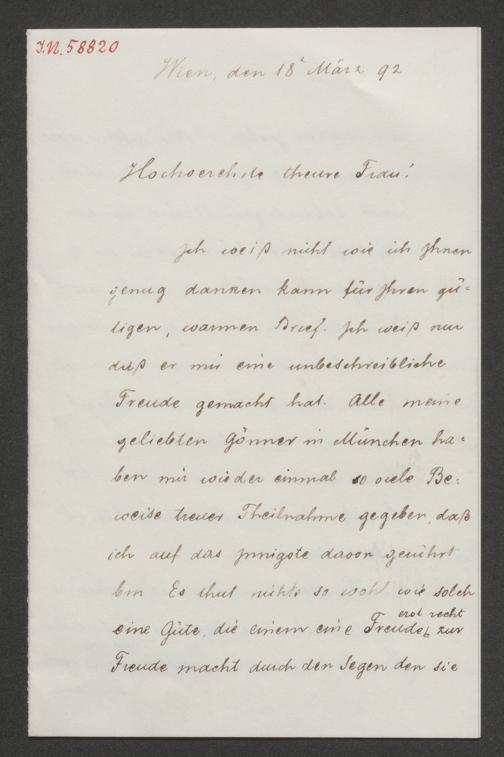 I.N. 58820
Wien, den 18t März 92
Hochverehrte theure Frau!
Ich weiß nicht wie ich Ihnen
genug danken kann für Ihren gü=
tigen, warmen Brief. Ich weiß nur
daß er mir eine unbeschreibliche
Freude gemacht hat. Alle meine
geliebten Gönner in München ha=
ben mir wieder einmal so viele Be=
weise treuer Theilnahme gegeben, daß
ich auf das Innigste davon gerührt
bin. Es thut nichts so wohl wie solch
erst recht
eine Güte, die einem eine Freude, zur
Freude macht durch den Segen den sie